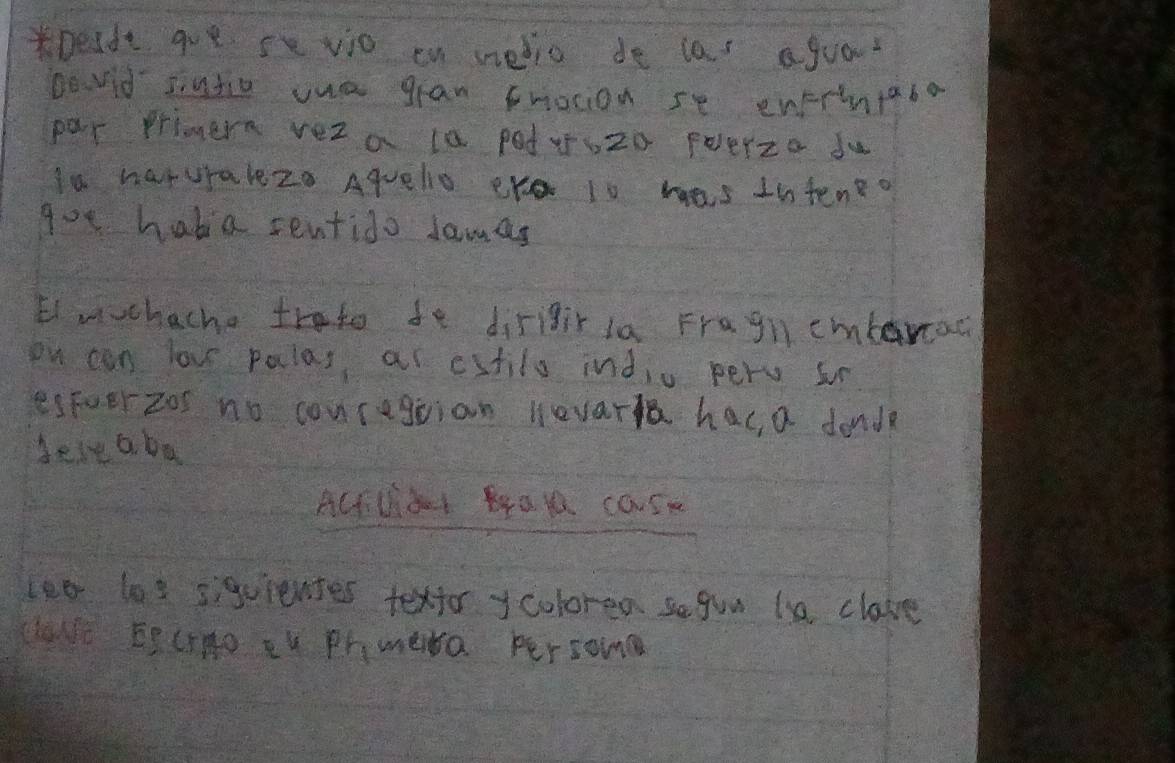 *Desde que se vio en medio de las aguas
David sintio una gran emocion se enfrentaba
por primera vez a la poderoza fuerza de
la naturaleza Aquello era lo mas intenso
que habia sentido Jamas
El muchacho trato de dirigir la Fragil embarcaci
on con las palas, al estilo indio pero sus
esfuerzos no conseguian llevarla hacia donde
deseaba
Actividad para casa
Lee los siguientes textos y colorea segun la clave
clave Escrito en primera persona